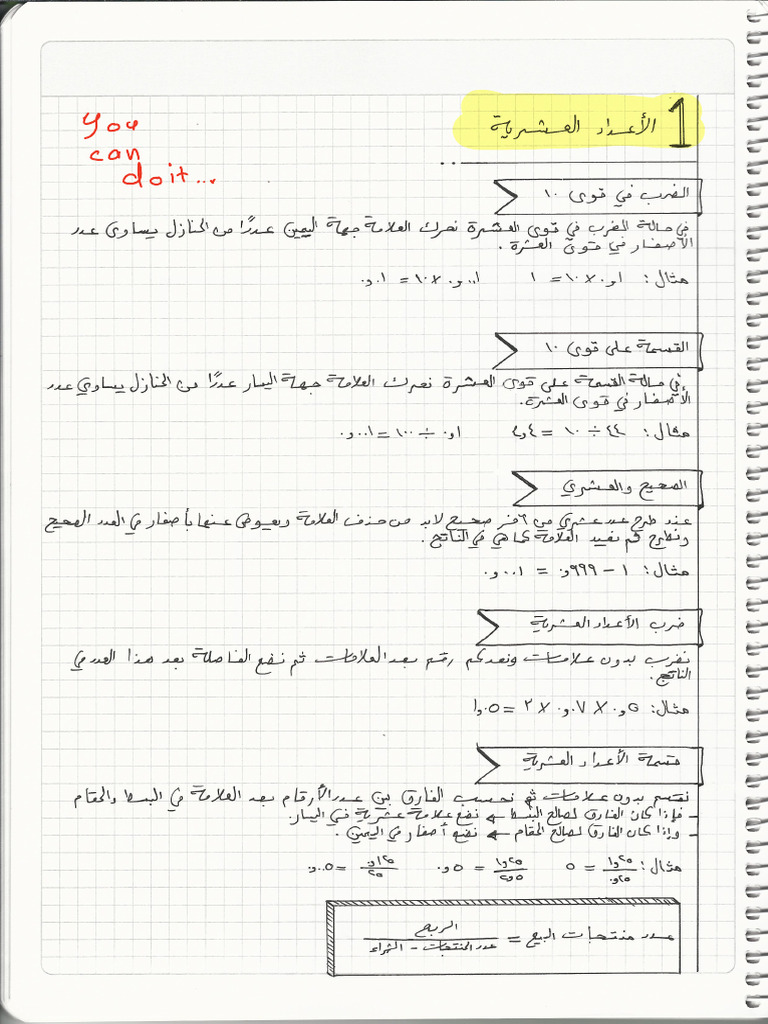 1 الأعداد العشرية
you
can
do it...
الضرب في قوى ١٠
في حالة الضرب في قوى العشرة نحرك العلامة جهة اليمين عددًا من المنازل يساوي عدد
الأصفار في قوى العشرة.
مثال: ٠,١ × ١٠ = ١    ٠,٠٠١ × ١٠ = ٠,٠١
القسمة على قوى ١٠
في حالة القسمة على قوى العشرة نحرك العلامة جهة اليسار عددًا من المنازل يساوي عدد
الأصفار في قوى العشرة.
مثال: ٢٤ ÷ ١٠ = ٢,٤    ٠,١ ÷ ١٠٠ = ٠,٠٠١
الصحيح والعشري
عند طرح عدد عشري من آخر صحيح لابد من حذف العلامة ويعوض عنها بأصفار في العدد الصحيح
ونطرح ثم نعيد العلامة كما هي في الناتج.
مثال: ١ − ٠,٩٩٩ = ٠,٠٠١
ضرب الأعداد العشرية
نضرب بدون علامات ونعد كم رقم بعد العلامات ثم نضع الفاصلة بعد هذا العدد في
الناتج.
مثال: ٠,٥ × ٠,٠٧ × ٢
قسمة الأعداد العشرية
نقسم بدون علامات ثم نحسب الفارق بين عدد الأرقام بعد العلامة في البسط والمقام
– فإذا كان الفارق لصالح البسط ← نضع علامة عشرية في اليسار.
– وإذا كان الفارق لصالح المقام ← نضع أصفار في اليمين.
مثال: ١,٢٥ / ٠,٢٥ = ٥    ١,٢٥ / ٢,٥ = ٠,٥    ٠,١٢٥ / ٢٥ = ٠,٠٠٥
عدد منتجات البيع = الربح / عدد المنتجات − الشراء